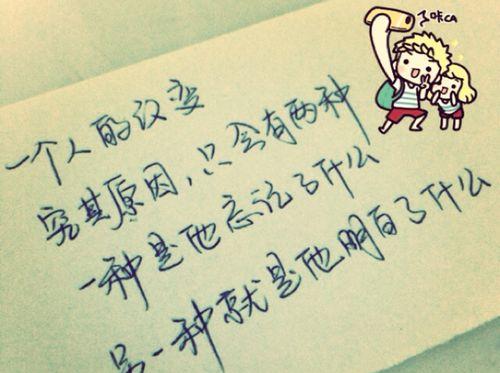 一个人的改变
究其原因,只会有两种
一种是他忘记了什么
另一种就是他明白了什么